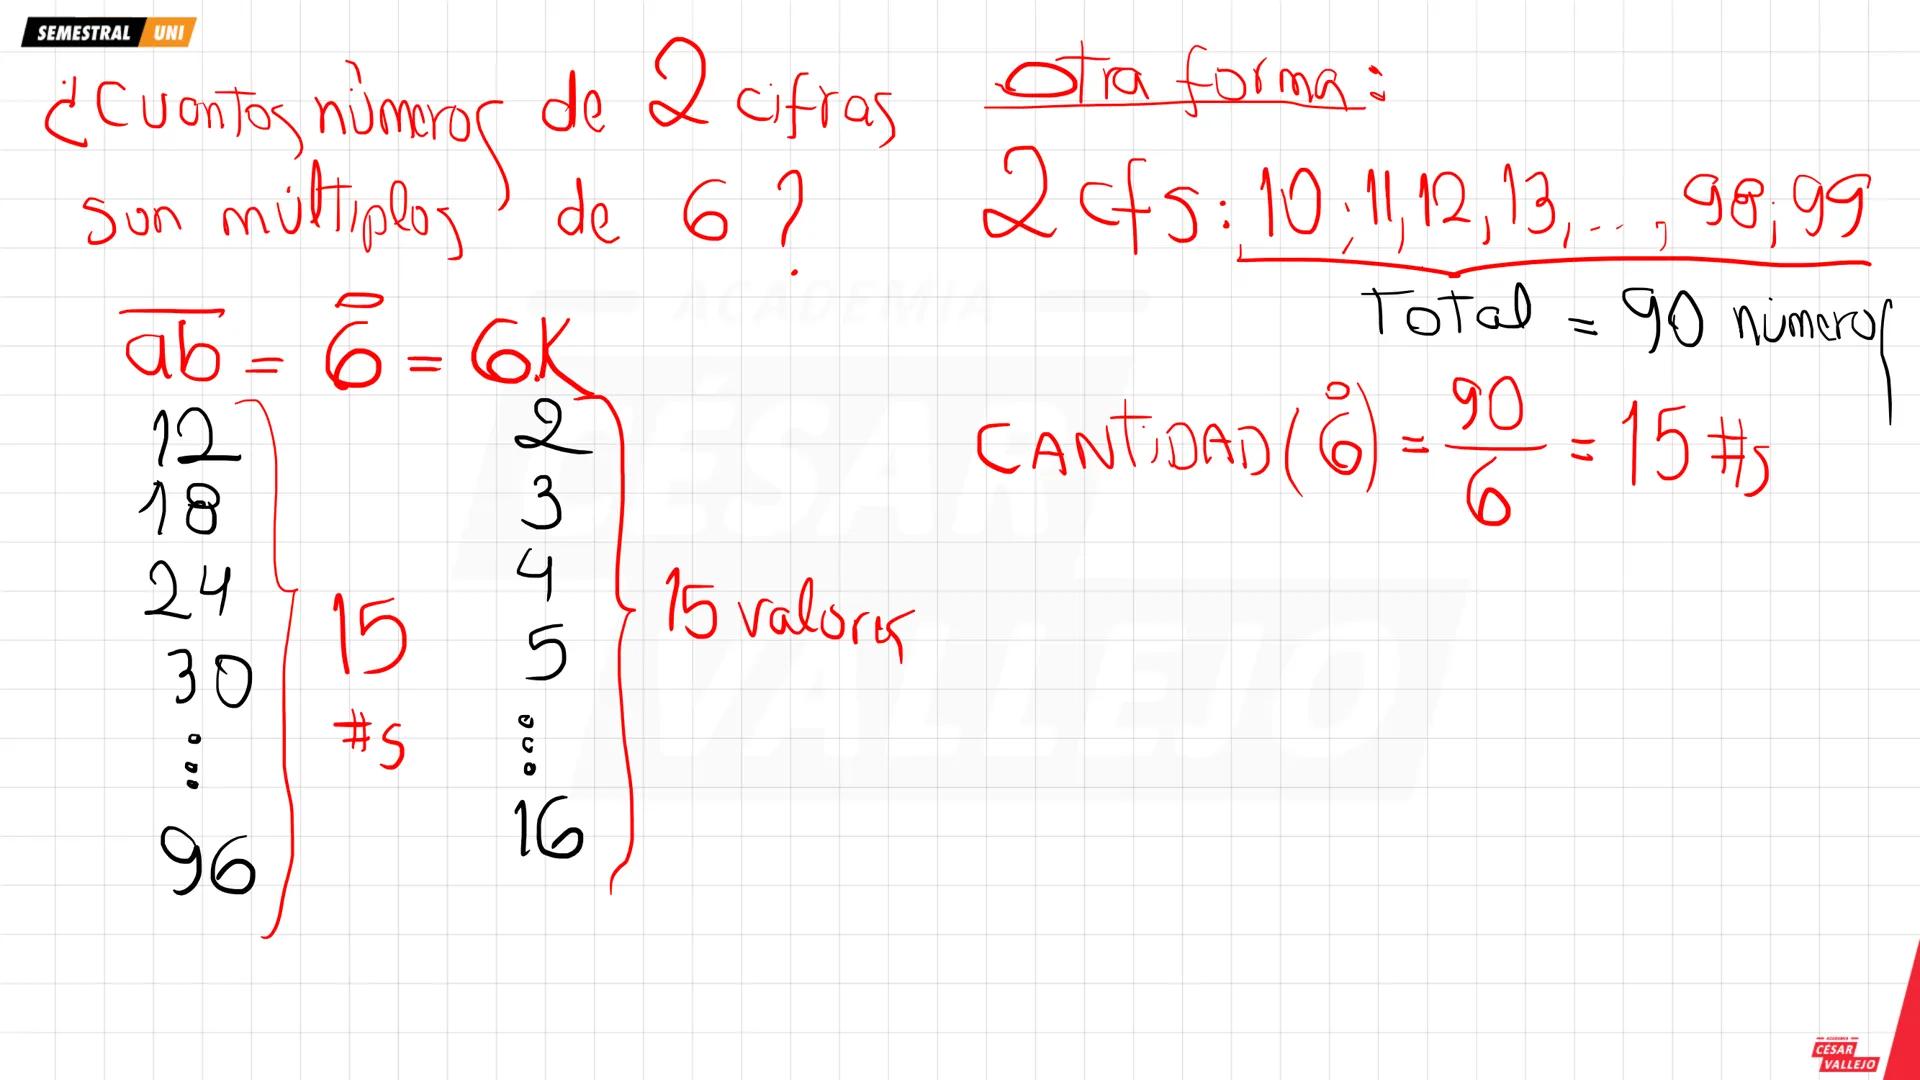 SEMESTRAL UNI
¿Cuantos números de 2 cifras
son múltiplos de 6?
ab = 6 = 6K
12 2
18 3
24 4
30 5
⋮ ⋮
96 16
15
#s
15 valores
Otra forma:
2 cfs: 10; 11, 12, 13, ..., 98; 99
Total = 90 números
CANTiDAD (6°) = 90/6 = 15 #s
ACADEMIA
CÉSAR
VALLEJO
ACADEMIA
CÉSAR
VALLEJO